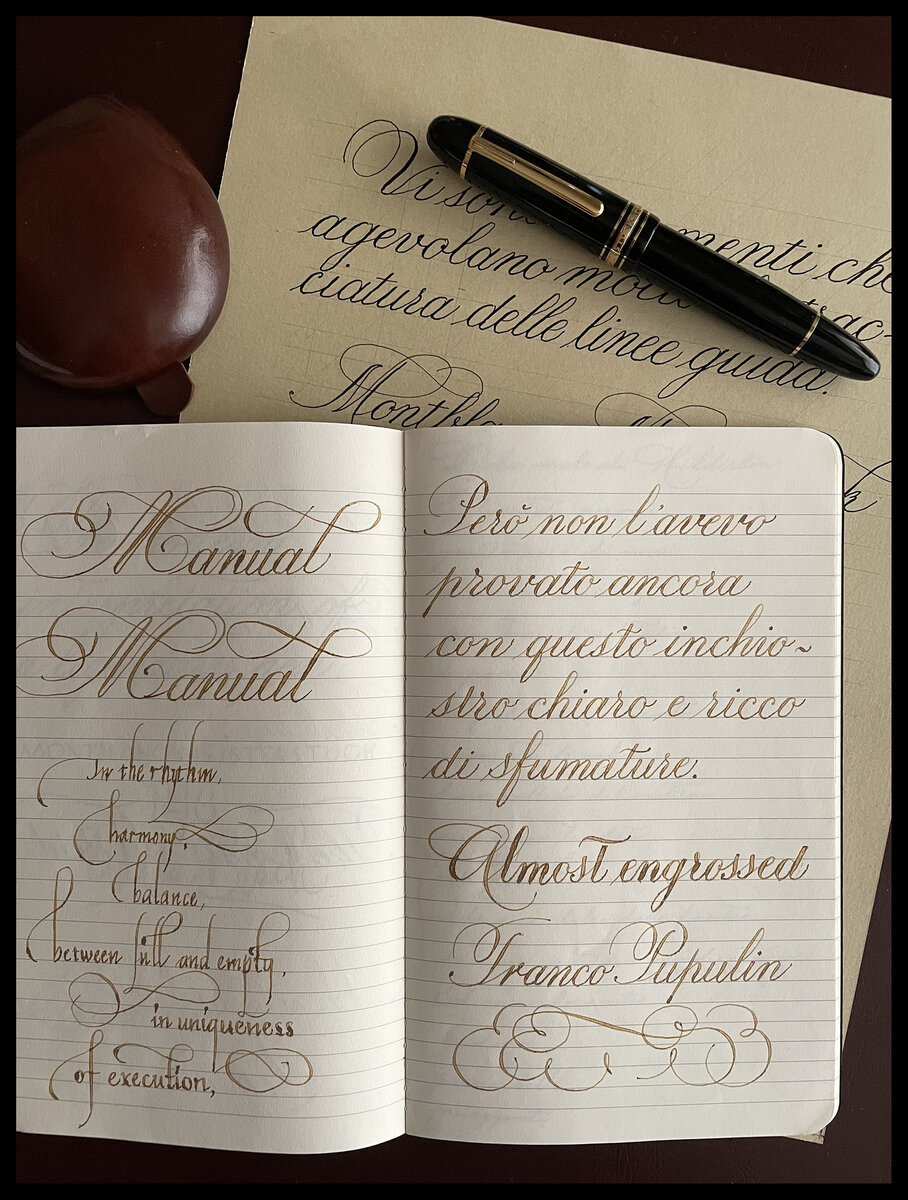 Vi son menti che
agevolano trac-
ciatura delle linee guida.
Manual
Manual
In the rhythm,
harmony,
balance,
between full and empty,
in uniqueness
of execution,
Però non l'avevo
provato ancora
con questo inchio~
stro chiaro e ricco
di sfumature.
Almost engrossed
Franco Pupulin